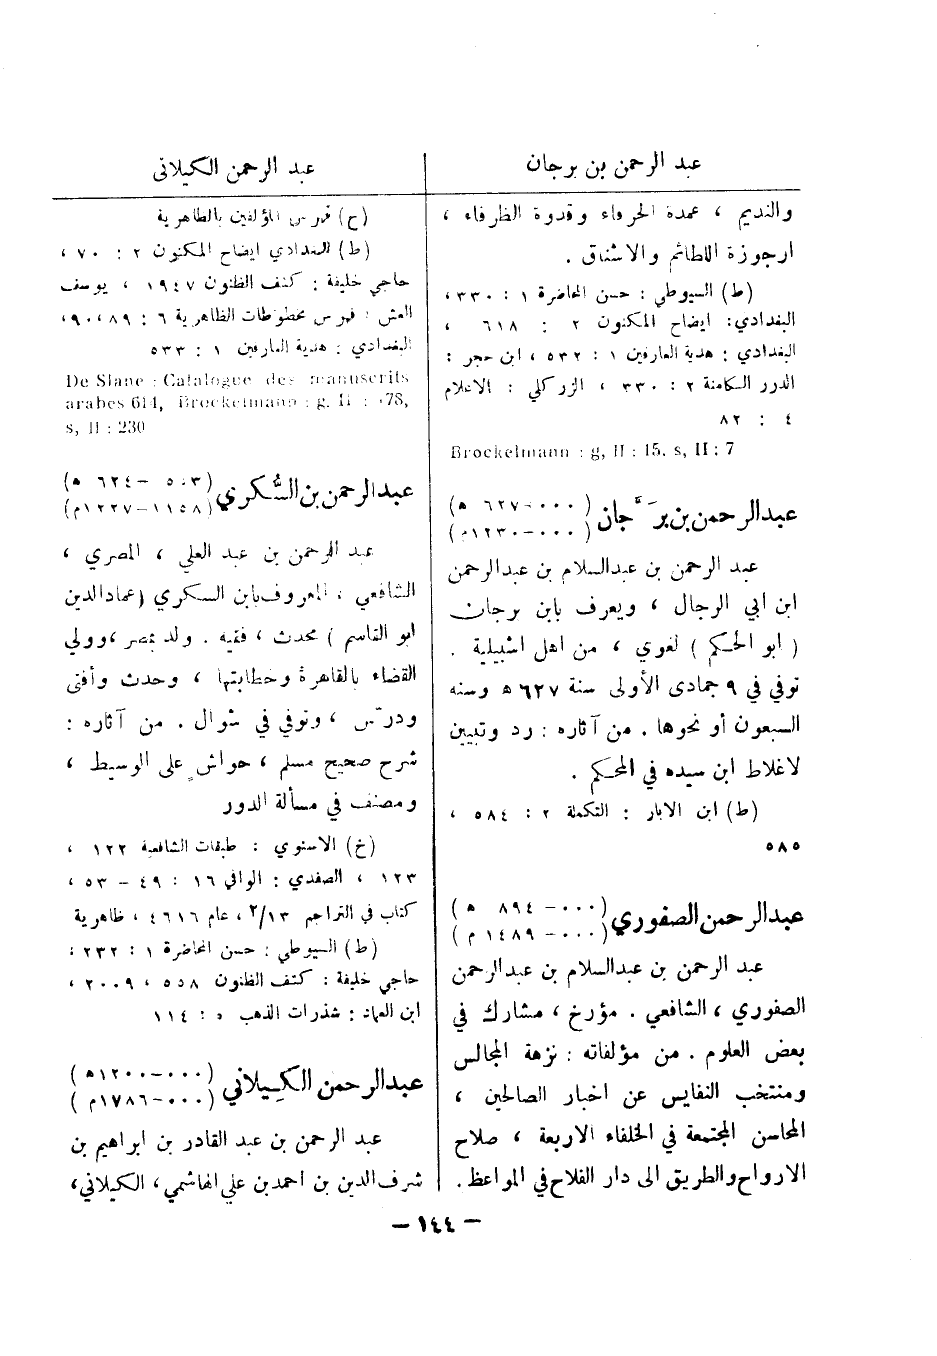 عبد الرحمن بن برجان
والنديم ، عمدة الحرفاء وقدوة الظرفاء ،
ارجوزة اللطائم والاشناق .
(ط) السيوطي : حسن المحاضرة ١ : ٣٣٠،
البغدادي: ايضاح المكنون ٢ : ٦١٨ ،
البغدادي : هدية العارفين ١ : ٥٣٢ ، ابن حجر :
الدرر الكامنة ٢ : ٣٣٠ ، الزركلي : الاعلام
٤ : ٨٢
Brockelmann : g, II : 15. s, II : 7
عبدالرحمن بن برَّجان
(٠٠٠-٦٢٧ ه)
(٠٠٠-١٢٣٠م)
عبد الرحمن بن عبدالسلام بن عبدالرحمن
ابن ابي الرجال ، ويعرف بابن برجان
( ابو الحكم ) لغوي ، من اهل اشبيلية .
توفي في ٩ جمادى الأولى سنة ٦٢٧ ه وسنه
السبعون أو نحوها . من آثاره : رد وتبيين
لاغلاط ابن سيده في المحكم .
(ط) ابن الابار : التكملة ٢ : ٥٨٤ ،
٥٨٥
عبدالرحمن الصفوري
(٠٠٠- ٨٩٤ ه )
(٠٠٠- ١٤٨٩ م )
عبد الرحمن بن عبدالسلام بن عبدالرحمن
الصفوري ، الشافعي . مؤرخ ، مشارك في
بعض العلوم . من مؤلفاته : نزهة المجالس
ومنتخب النفايس عن اخبار الصالحين ،
المحاسن المجتمعة في الخلفاء الاربعة ، صلاح
الارواح والطريق الى دار الفلاح في المواعظ .
عبد الرحمن الكيلانى
(خ) فهرس المؤلفين بالظاهرية
(ط) البغدادي ايضاح المكنون ٢ : ٧٠ ،
حاجي خليفة : كشف الظنون ١٩٤٧ ، يوسف
العش : فهرس مخطوطات الظاهرية ٦ : ٨٩، ٩٠،
البغدادي : هدية العارفين ١ : ٥٣٣
De Slane : Catalogue des manuscrits
arabes 614, Brockelmann : g. II : 78,
s, II : 230
عبدالرحمن بن السُّكري
( - ٦٢٤ ه)
(١١٥٨-١٢٢٧م)
عبد الرحمن بن عبد العلي ، المصري ،
الشافعي ، المعروف بابن السكري (عمادالدين
ابو القاسم ) محدث ، فقيه . ولد بمصر ، وولي
القضاء بالقاهرة وخطابتها ، وحدث وأفتى
ودرّس ، وتوفي في شوال . من آثاره :
شرح صحيح مسلم ، حواشٍ على الوسيط ،
ومصنف في مسألة الدور
(خ) الاسنوي : طبقات الشافعية ١٢٢ ،
١٢٣ ، الصفدي : الوافي ١٦ : ٤٩ - ٥٣ ،
كتاب في التراجم ٢/١٣ ، عام ٤٦١٦ ، ظاهرية
(ط) السيوطي : حسن المحاضرة ١ : ٢٣٢ ،
حاجي خليفة : كشف الظنون ٥٥٨ ، ٢٠٠٩ ،
ابن العماد : شذرات الذهب ٥ : ١١٤
عبدالرحمن الكِيلاني
(٠٠٠-١٢٠٠ه )
(٠٠٠-١٧٨٦م )
عبد الرحمن بن عبد القادر بن ابراهيم بن
شرف الدين بن احمد بن علي الهاشمي ، الكيلاني،
- ١٤٤ -